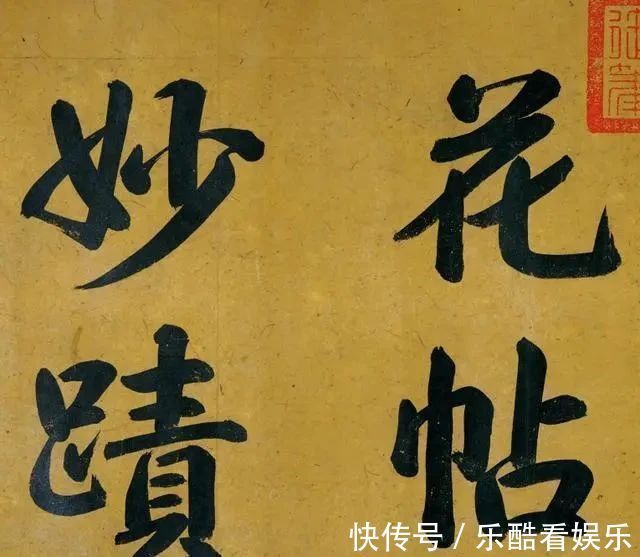 花帖
妙蹟
快传号/乐酷看娱乐